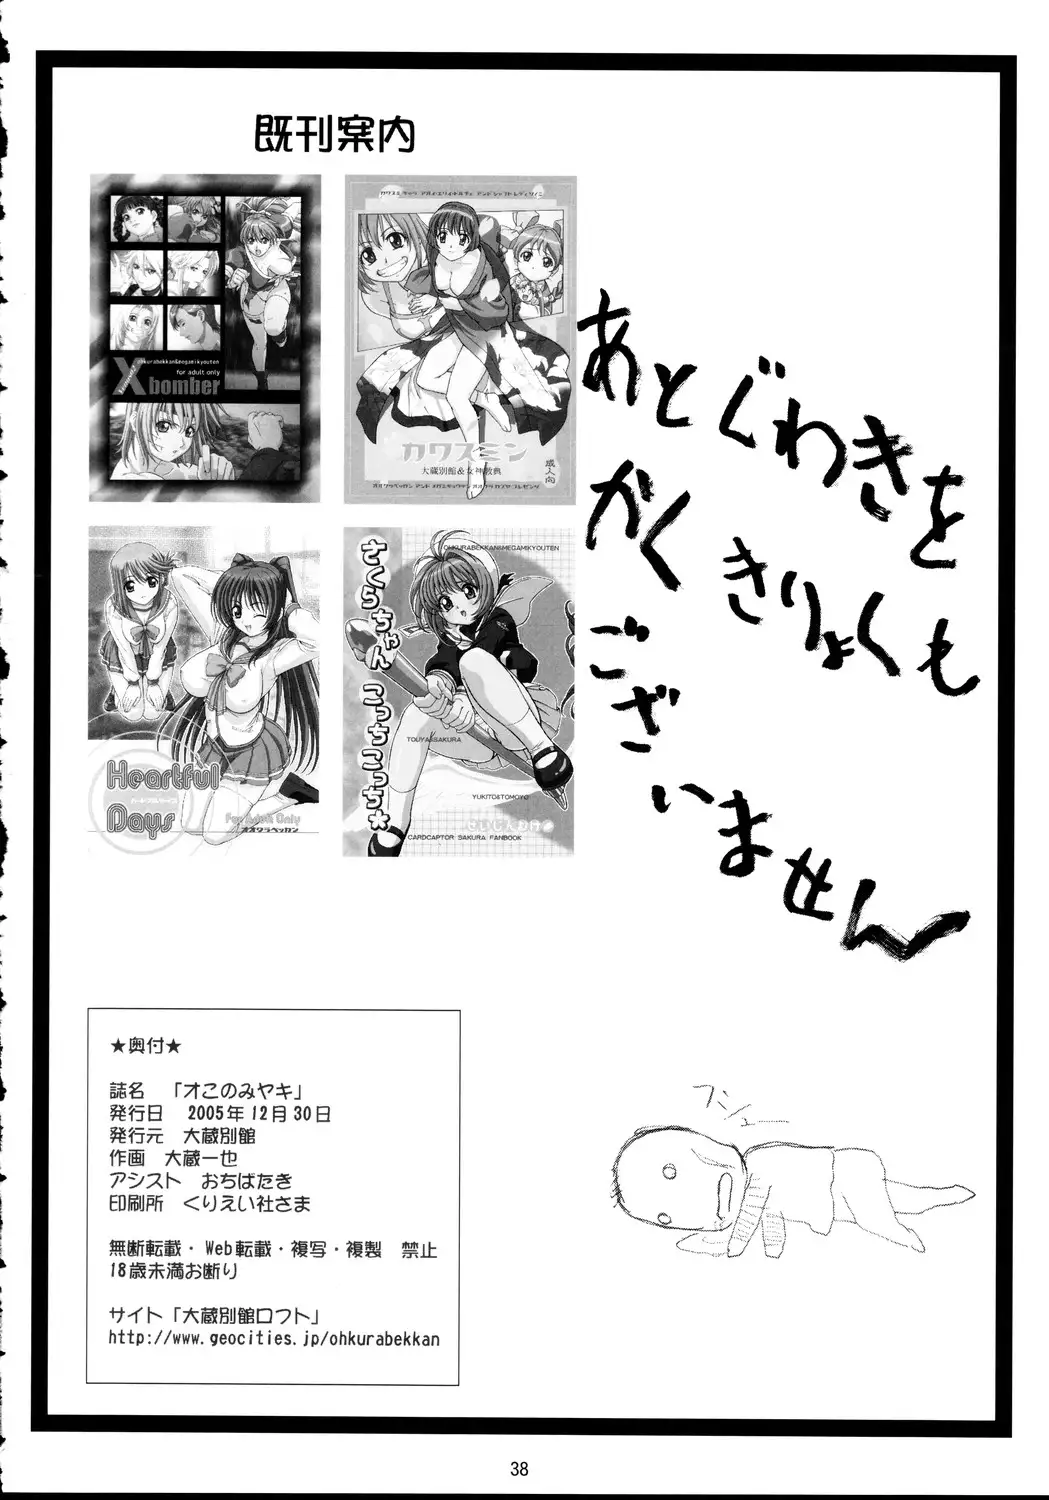 既刊案内
ohkurabekkan&megamikyouten
for adult only
X bomber
カワスミン
大蔵別館&女神教典
成人向
Heartful
Days
For Adult Only
オオクラベッカン
OHKURABEKKAN&MEGAMIKYOUTEN
さくらちゃん こっちこっち★
TOUYA&SAKURA
YUKITO&TOMOYO
CARDCAPTOR SAKURA FANBOOK
あとぐわきを
かくきりょくも
ございません
★奥付★
誌名 「オこのみヤキ」
発行日 2005年12月30日
発行元 大蔵別館
作画 大蔵一也
アシスト おちばたき
印刷所 くりえい社さま
無断転載・Web転載・複写・複製 禁止
18歳未満お断り
サイト「大蔵別館ロフト」
http://www.geocities.jp/ohkurabekkan
プシュー
38